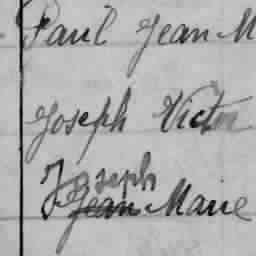 Paul Jean M
Joseph Victor
Joseph
Jean Marie